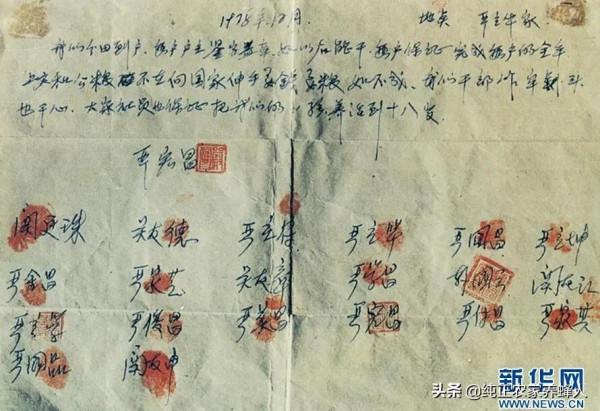 1978年12月 地点 严立华家
我们分田到户,每户户主签字盖章,如以后能干,每户保证完成每户的全年
上交和公粮 不在向国家伸手要钱要粮,如不成,我们干部作牢刹头
也干心,大家社员也保证把我们的小孩养活到十八岁。
严宏昌
关廷珠 关友德 严立符 严立华 严国昌 严立坤
严金昌 严家芝 关友章 严学昌 韩国云 关友江
严立学 严俊昌 严美昌 严宏昌 严付昌 严家其
严国品 关友申
新华网
WWW.NEWS.CN
头条 @纯正农家养蜂人